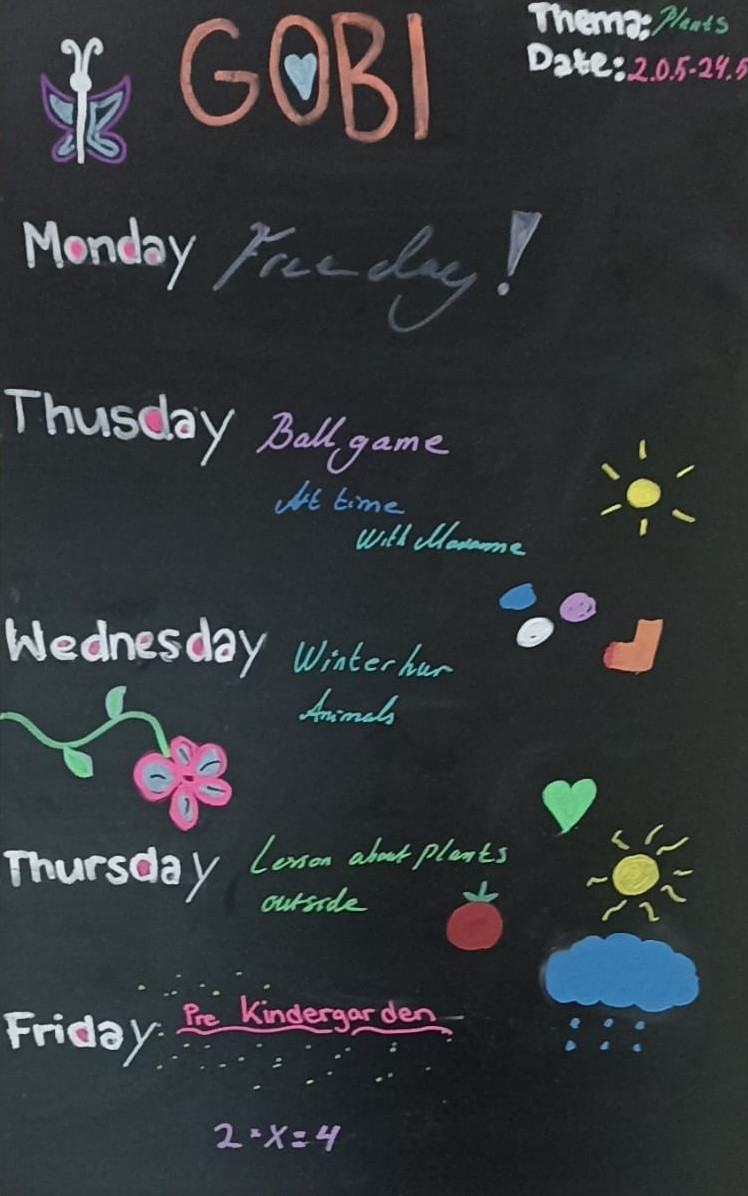 GOBI
Thema: Plants
Date: 2.0.5-24.5
Monday Free day!
Thusday Ball game
Art time
With Marianne
Wednesday Winter hur
Animals
Thursday Lesson about plants
outside
Friday Pre Kindergarden
2 · X = 4